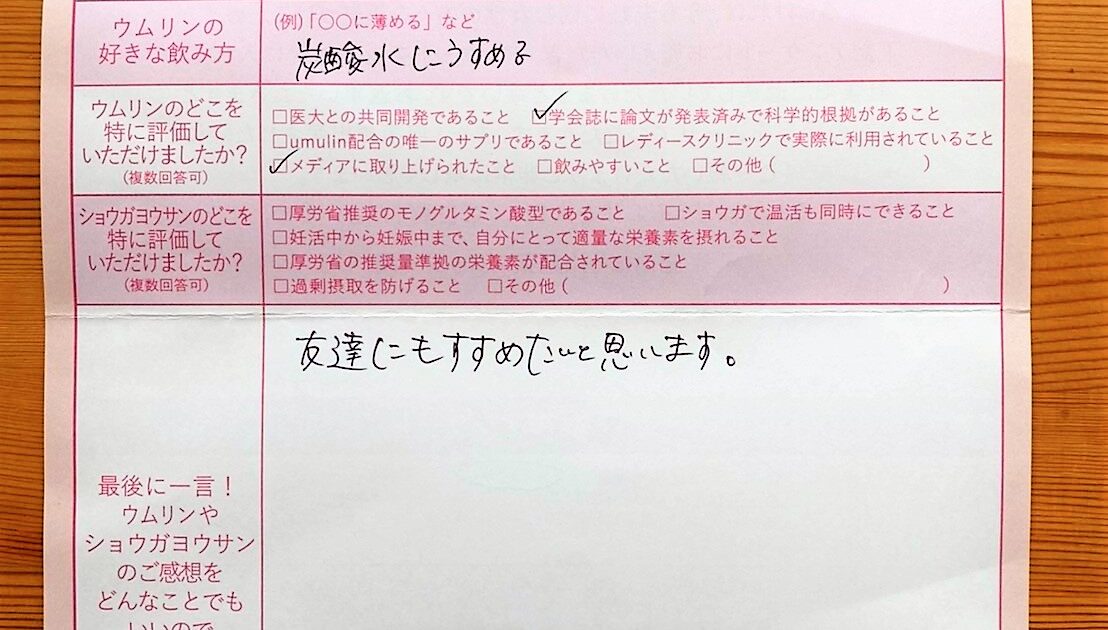 ウムリンの
好きな飲み方
(例)「〇〇に薄める」など
炭酸水にうすめる
ウムリンのどこを
特に評価して
いただけましたか?
(複数回答可)
□医大との共同開発であること ☑学会誌に論文が発表済みで科学的根拠があること
□umulin配合の唯一のサプリであること □レディースクリニックで実際に利用されていること
☑メディアに取り上げられたこと □飲みやすいこと □その他 ( )
ショウガヨウサンのどこを
特に評価して
いただけましたか?
(複数回答可)
□厚労省推奨のモノグルタミン酸型であること □ショウガで温活も同時にできること
□妊活中から妊娠中まで、自分にとって適量な栄養素を摂れること
□厚労省の推奨量準拠の栄養素が配合されていること
□過剰摂取を防げること □その他 ( )
友達にもすすめたいと思います。
最後に一言!
ウムリンや
ショウガヨウサン
のご感想を
どんなことでも
いいので